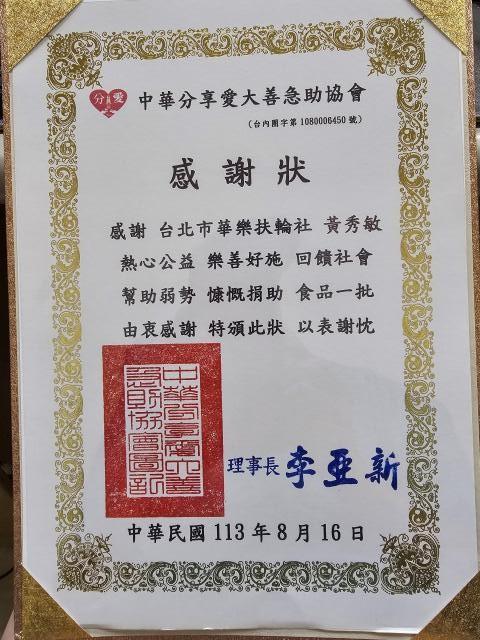 分 愛
中華分享愛大善急助協會
(台內團字第1080006450號)
感謝狀
感謝 台北市華樂扶輪社 黃秀敏
熱心公益 樂善好施 回饋社會
幫助弱勢 慷慨捐助 食品一批
由衷感謝 特頒此狀 以表謝忱
中華分享愛大善
急助協會圖記
理事長 李亞新
中華民國113年8月16日